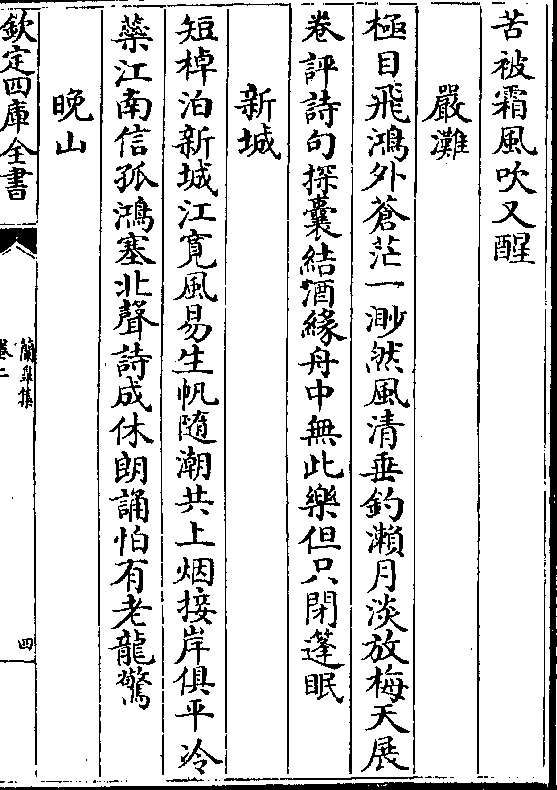 苦被霜風吹又醒
嚴灘
極目飛鴻外蒼茫一渺然風清垂釣瀨月淡放梅天展
卷評詩句探囊結酒緣舟中無此樂但只閉蓬眠
新城
短棹泊新城江寛風易生帆隨潮共上烟接岸俱平冷
藥江南信孤鴻塞北聲詩成休朗誦怕有老龍驚
晚山
欽定四庫全書
蘭臯集
卷二
四